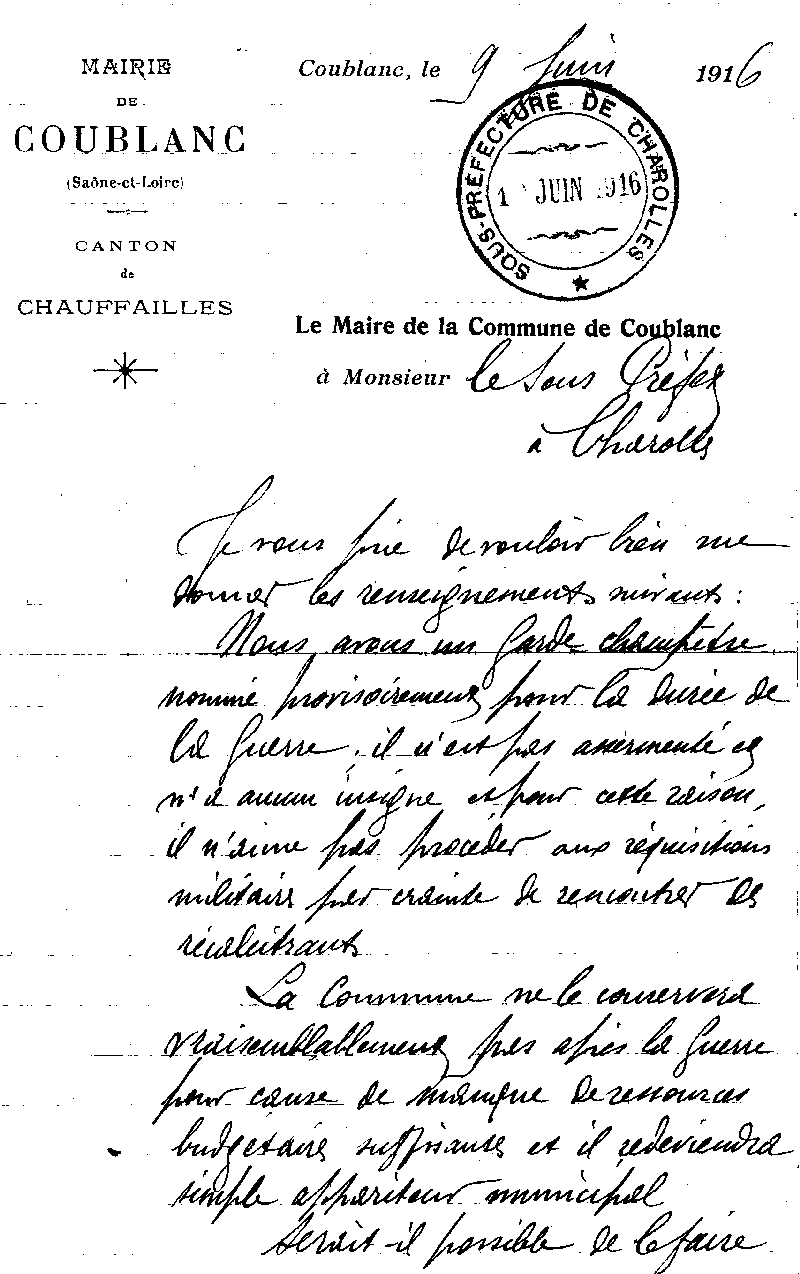 MAIRIE
DE
COUBLANC
(Saône-et-Loire)
CANTON
de
CHAUFFAILLES
Coublanc, le 9 Juin 1916
SOUS-PRÉFECTURE DE CHAROLLES
1 JUIN 1916
Le Maire de la Commune de Coublanc
à Monsieur le Sous Préfet
à Charolles
Je vous prie de vouloir bien me
donner les renseignements suivants :
Nous avons un garde champêtre
nommé provisoirement pour la durée de
la guerre ; il n'est pas assermenté et
n'a aucun insigne et pour cette raison,
il n'aime pas procéder aux réquisitions
militaires par crainte de rencontrer des
récalcitrants
La Commune ne le conservera
vraisemblablement pas après la guerre
pour cause de manque de ressources
budgétaires suffisantes et il redeviendra
simple appariteur municipal
Serait-il possible de le faire